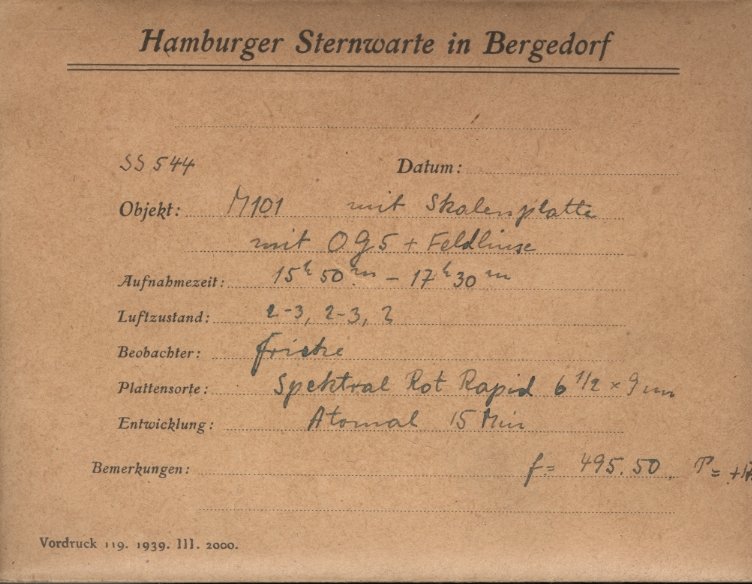 Hamburger Sternwarte in Bergedorf
SS 544 Datum:
Objekt: M101 mit Skalenplatte
mit OG5 + Feldlinse
Aufnahmezeit: 15h 50m - 17h 30m
Luftzustand: 2-3, 2-3, 2
Beobachter: Fricke
Plattensorte: Spektral Rot Rapid 6 1/2 × 9 cm
Entwicklung: Atomal 15 Min
Bemerkungen: f= 495.50 T=
Vordruck 119. 1939. III. 2000.